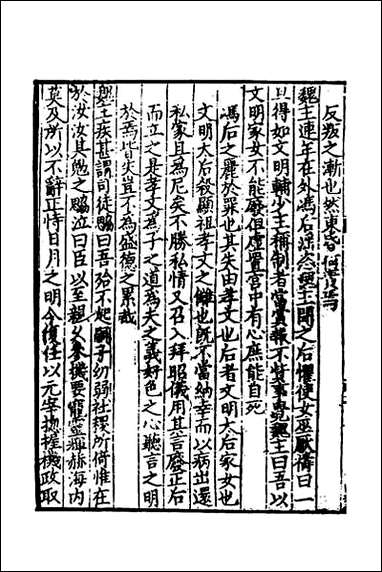 反叛之漸也然東昏何責焉
魏主連年在外馮后淫恣魏主聞之后懼使女巫厭禱曰一
旦得如文明輔少主稱制者當賞報不貲事覺魏主曰吾以
文明家女不能廢但虛置宮中有心庶能自死
馮后之麗於罪也其失由孝文也后者文明大后家女也
文明太后殺顯祖孝文之讎也既不當納幸而以病出還
私家且為尼矣不勝私情又召入拜昭儀用其言廢正后
而立之是孝文為子之道為夫之義好色之心聽言之明
於焉皆失豈不為盛德之累哉
魏主疾甚謂司徒勰曰吾殆不起嗣子幼弱社稷所倚惟在
於汝汝其勉之勰泣曰臣以至親久參機要寵靈輝赫海内
莫及所以不辭正恃日月之明今復任以元宰揔握機政取